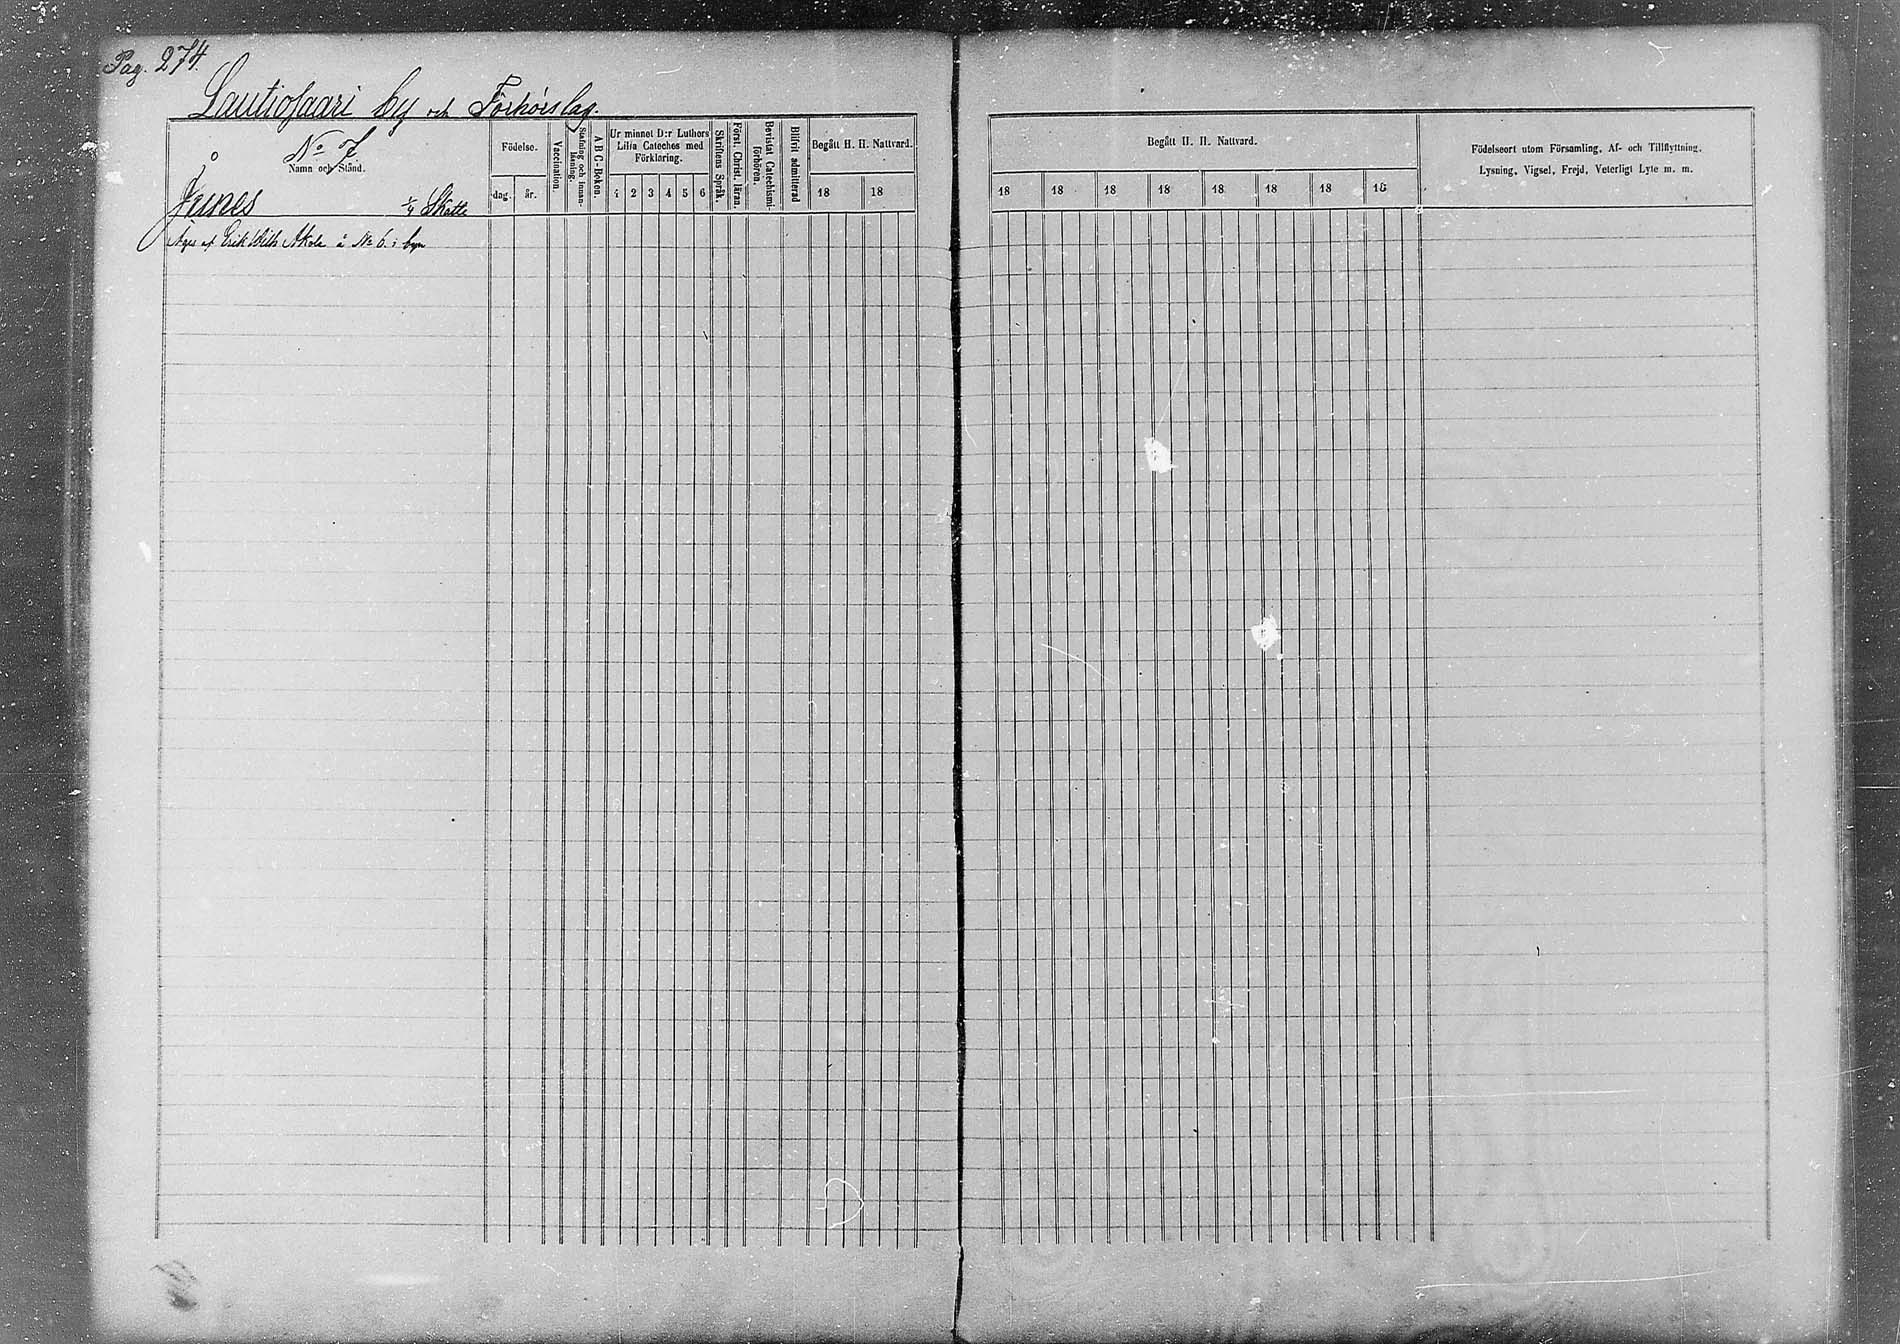 Pag. 274.
Lautiosaari by och Förhörslag.
No 7
Namn och Stånd.
Junes 1/4 Skatte
Äges af Erik Wilh. Akola å No 6 i byn
Födelse.
dag. år.
Vaccination.
Stafning och innan-läsning.
A B C-Boken.
Ur minnet D:r Luthers
Lilla Cateches med
Förklaring.
1 2 3 4 5 6
Skriftens Språk.
Först. Christ. läran.
Bevistat Catechismi-förhören.
Blifvit admitterad
Begått H. H. Nattvard.
18 18
Begått H. H. Nattvard.
18 18 18 18 18 18 18 18
Födelseort utom Församling, Af- och Tillflyttning.
Lysning, Vigsel, Frejd, Veterligt Lyte m. m.